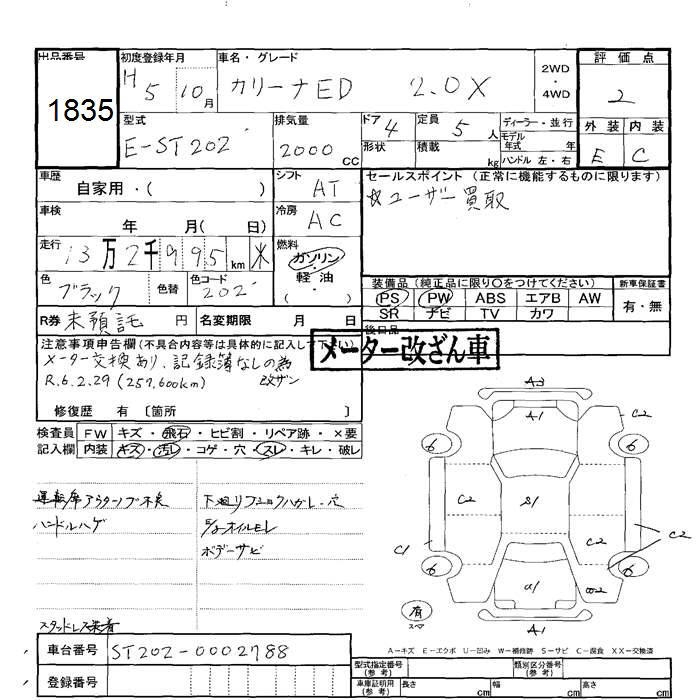 出品番号 1835
初度登録年月 H5 10月
車名・グレード カリーナED 2.0X
2WD・4WD
評価点 2
型式 E-ST202
排気量 2000cc
ドア 4 形状
定員 5人 積載 kg
ディーラー・並行
モデル年式 年式
ハンドル 左・右
外装 E 内装 C
車歴 自家用・( )
シフト AT
セールスポイント (正常に機能するものに限ります)
☆ユーザー買取
車検 年 月( 日)
冷房 AC
走行 13万2千995km ※
燃料 ガソリン・軽油 ( )
色 ブラック 色替 色コード 202
装備品 (純正品に限り○をつけてください)
新車保証書
PS PW ABS エアB AW
SR ナビ TV カワ
有・無
R券 未預託 円 名変期限 月 日
後日品
注意事項申告欄(不具合内容等は具体的に記入して下さい)
メーター改ざん車
メーター交換あり、記録簿なしの為
R.6.2.29 (257,600km) 改ザン
修復歴 有 〔箇所 〕
検査員記入欄
FW キズ・飛石・ヒビ割・リペア跡・×要
内装 キズ・汚レ・コゲ・穴・スレ・キレ・破レ
ハンドルハゲ
オイルモレ
ボデーサビ
スタッドレス装着
A3
A1
C2
6 6
C2 S1 C2
C1 C2
6 6
a1
A1
有 スペア
A-キズ E-エクボ U-凹み W-補修跡 S-サビ C-腐食 XX-交換済
車台番号 ST202-0002788
登録番号
型式指定番号(参考) 類別区分番号(参考)
車庫証明用(参考) 長さ cm 幅 cm 高さ cm